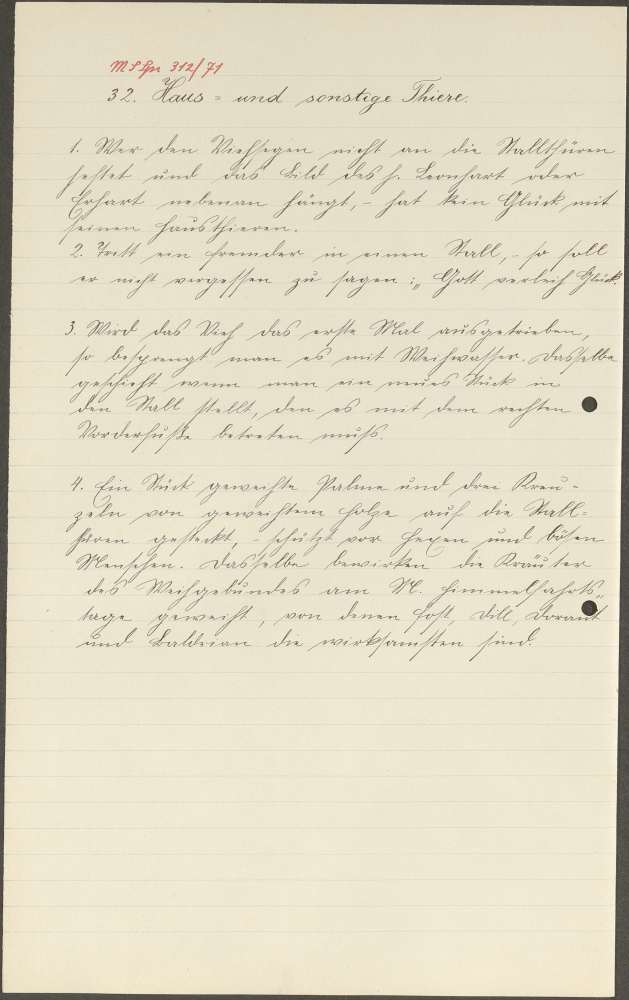 MSLpn 312/71
32. Haus- und sonstige Thiere.
1. Wer den Viehsegen nicht an die Stallthüren
heftet und das Bild des h. Leonhart oder
Erhart nebenan hängt, - hat kein Glück mit
seinen Hausthieren.
2. Tritt ein Fremder in einen Stall, - so soll
er nicht vergessen zu sagen: „Gott verleih Glück
3. Wird das Vieh das erste Mal ausgetrieben,
so besprengt man es mit Weihwasser. Dasselbe
geschieht wenn man ein neues Stück in
den Stall stellt, den es mit dem rechten
Vorderfuße betreten muß.
4. Ein Stück geweihte Palme und drei Kreu-
zeln von geweihtem Holze auf die Stall-
thüren gesteckt, - schützt vor Hexen und bösen
Menschen. Dasselbe bewirken die Kräuter
des Weihgebundes am M. Himmelfahrts-
tage geweiht, von denen Dill, Dorant
und Baldrian die wirksamsten sind.